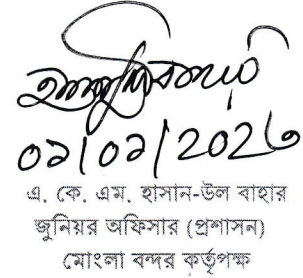 ০১/০১/2026
এ. কে. এম. হাসান-উল বাহার
জুনিয়র অফিসার (প্রশাসন)
মোংলা বন্দর কর্তৃপক্ষ